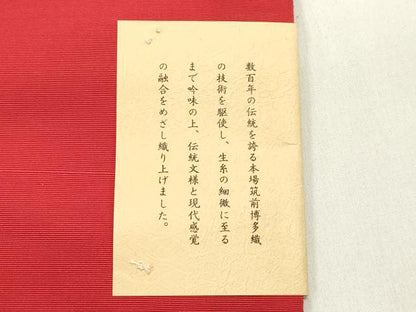 数百年の伝統を誇る本場筑前博多織
の技術を駆使し、生糸の細微に至る
まで吟味の上、伝統文様と現代感覚
の融合をめざし織り上げました。